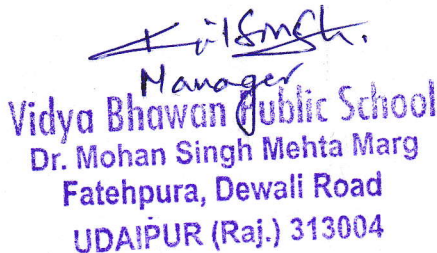 Singh.
Manager
Vidya Bhawan Public School
Dr. Mohan Singh Mehta Marg
Fatehpura, Dewali Road
UDAIPUR (Raj.) 313004